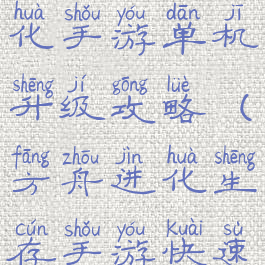 huà shǒu yóu dān jī
化手游单机
shēng jí gōng lüè
升级攻略（
fāng zhōu jìn huà shēng
方舟进化生
cún shǒu yóu Kuài sù
存手游快速